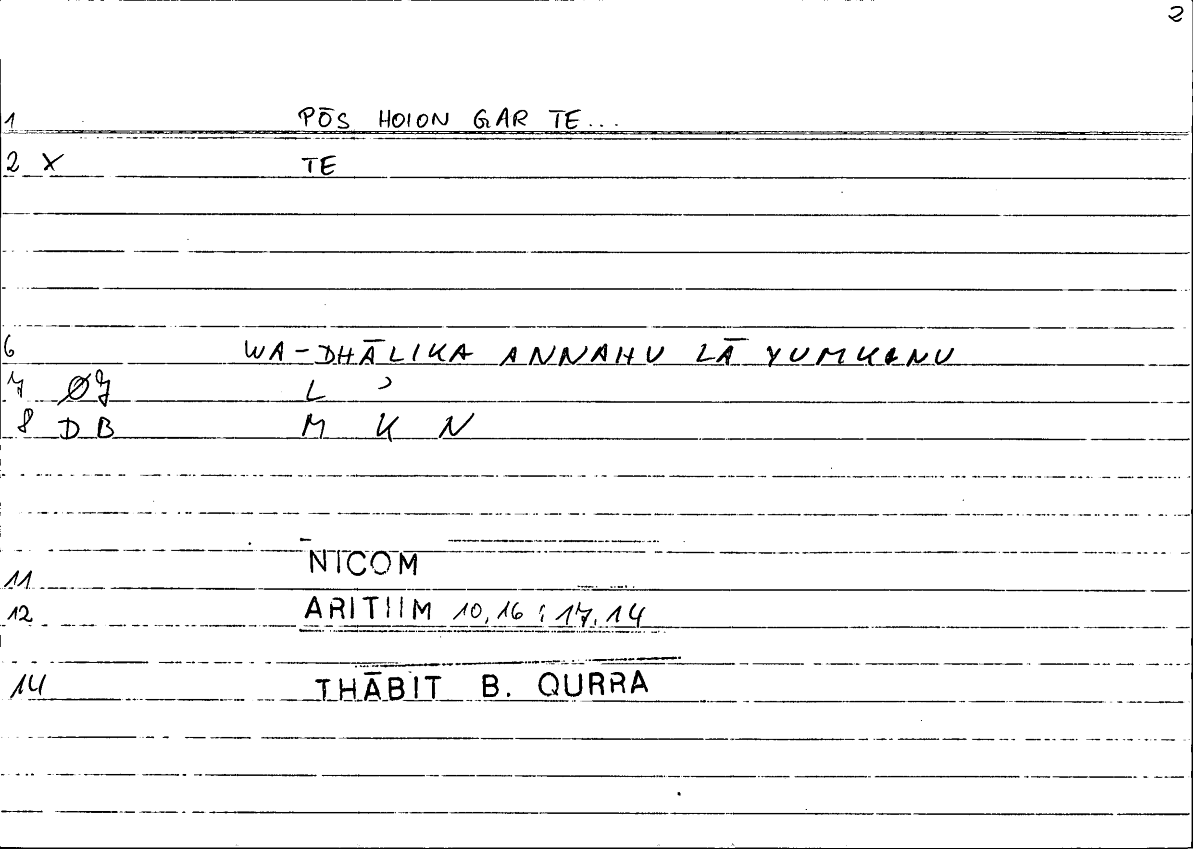 2
1 PŌS HOION GAR TE...
2 X TE
6 WA-DHĀLIKA ANNAHU LĀ YUMKINU
7 L ʾ
8 D B M K N
11 NICOM
12 ARITIIM 10,16 ; 17,14
14 THĀBIT B. QURRA